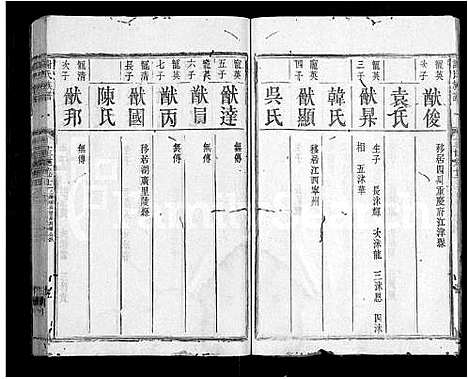 猷俊
移居四川重慶府江津縣
袁氏
龍英
三子
猷杲
生子 長沐縣 次沐龍 三沐恩 四沐
相 五沐華
韓氏
龍英
四子
猷顯
移居江西寧州
吳氏
龍英
五子
猷達
無傳
龍英
六子
猷肩
龍英
七子
猷丙
無傳
龍清
長子
猷國
移居湖廣里陵縣
陳氏
龍清
次子
猷邦
無傳